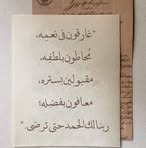 "غارقون في نعمه،
مُحاطون بلطفِه،
مقبولين بستره،
معافون بفضله؛
ربنا لك الحمد حتى ترضى."